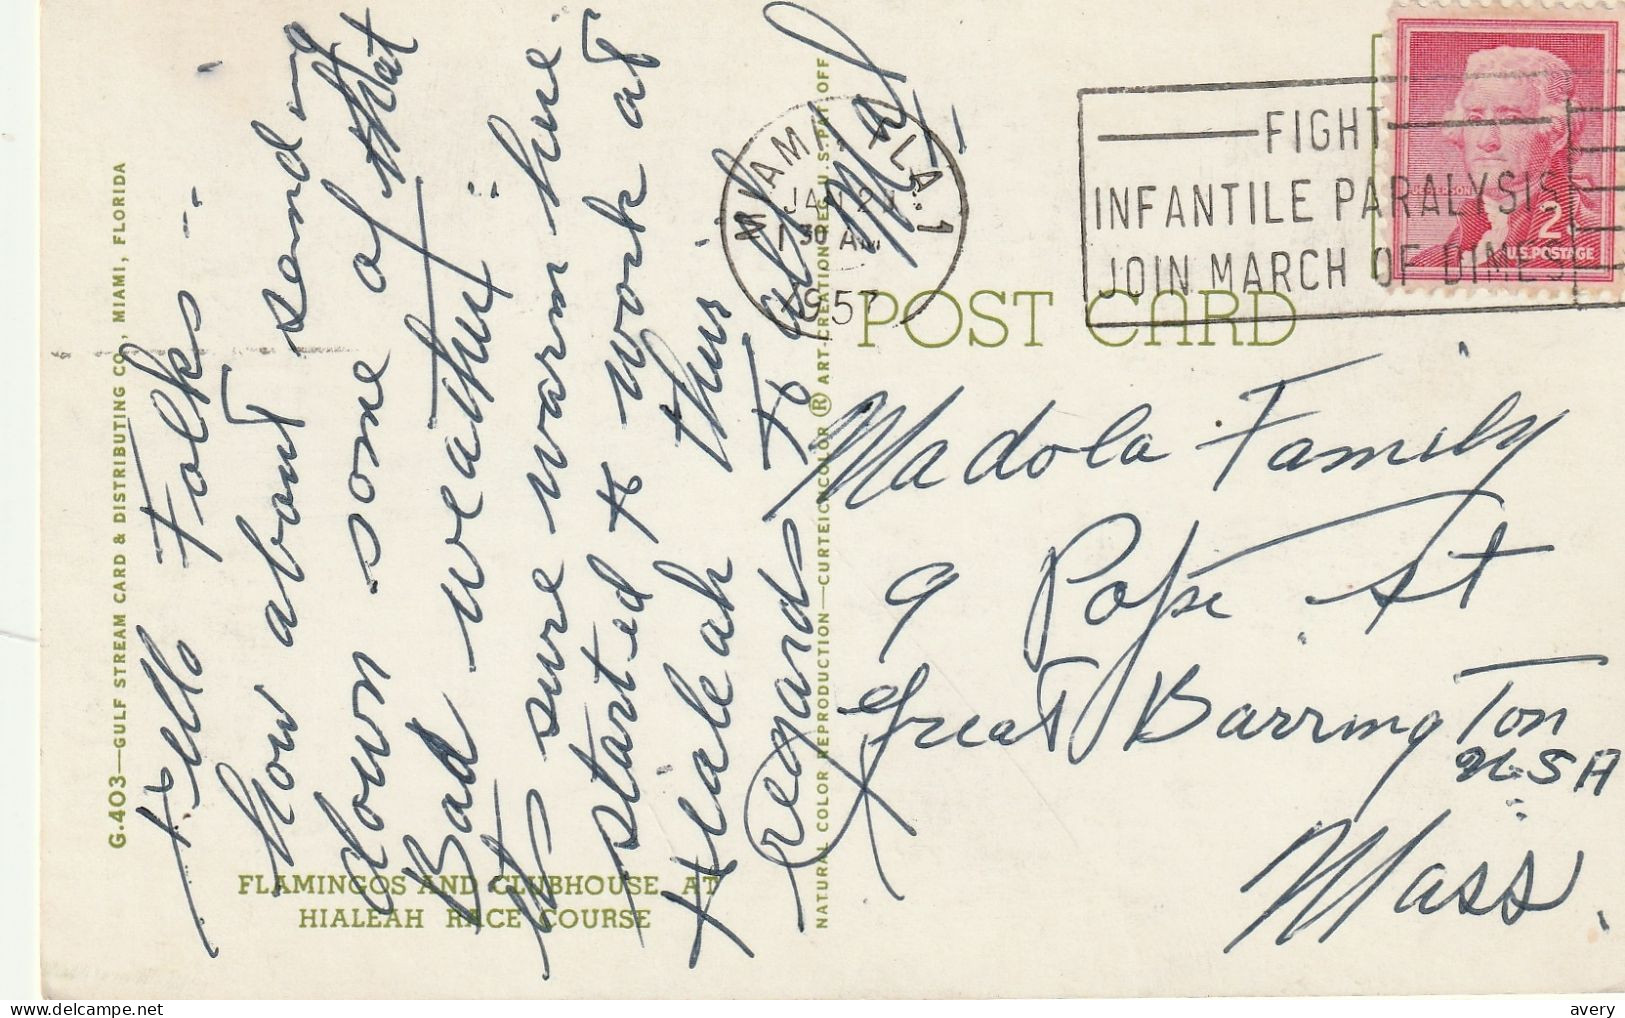 Hello Folks --
how about sending
down some of that
Bad weather
its sure warm here
started to work at
Hialeah thur
regards to all
Mal
G.403—GULF STREAM CARD & DISTRIBUTING CO., MIAMI, FLORIDA
FLAMINGOS AND CLUBHOUSE AT
HIALEAH RACE COURSE
NATURAL COLOR REPRODUCTION—CURTEICHCOLOR ® ART-CREATION REG. U.S. PAT. OFF
MIAMI, FLA. 1
JAN
1 30 AM
1957
FIGHT
INFANTILE PARALYSIS
JOIN MARCH OF DIMES
JEFFERSON
2¢
U.S. POSTAGE
POST CARD
Madola Family
9 Pope St
Great Barrington
USA
Mass.
avery